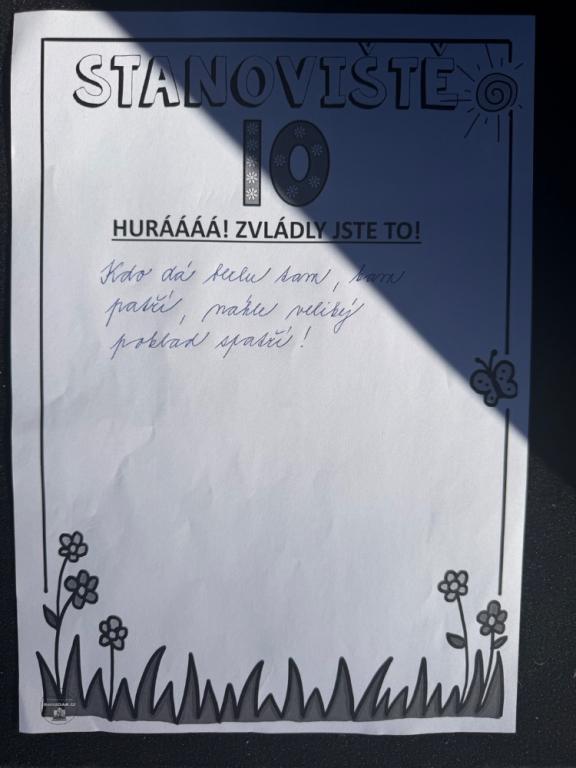 STANOVIŠTĚ
10
HURÁÁÁÁ! ZVLÁDLY JSTE TO!
Kdo dá berlu tam, kam
patří, náhle veliký
poklad spatří!